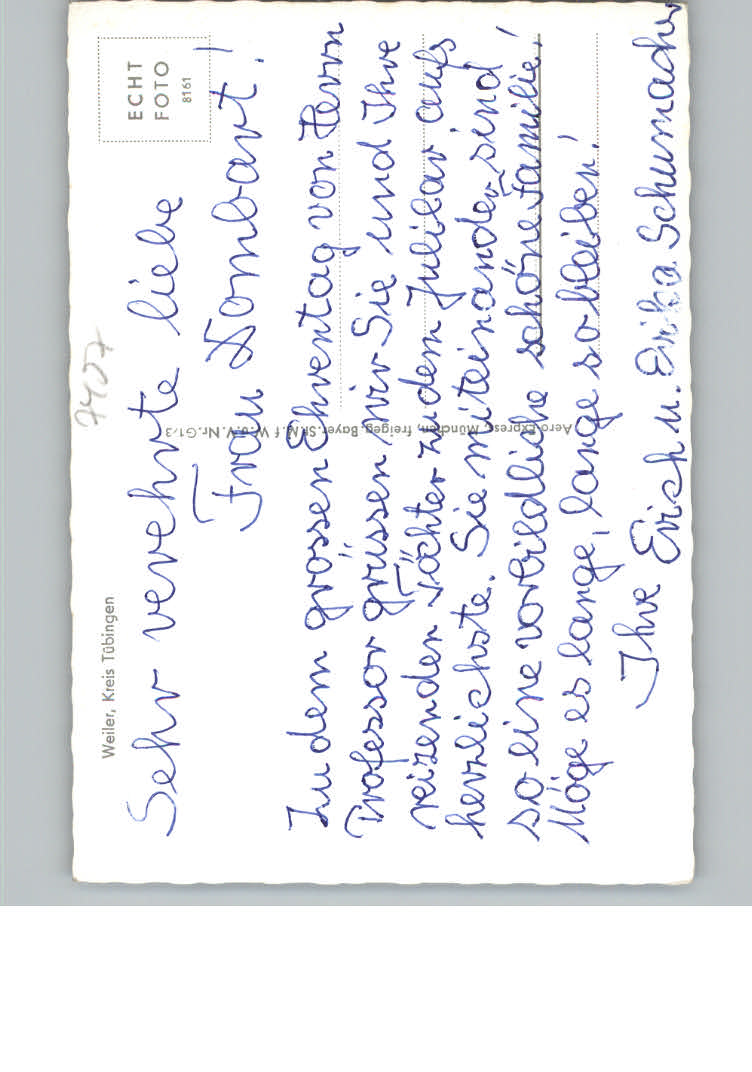 Weiler, Kreis Tübingen
7407
ECHT
FOTO
8161
Sehr verehrte liebe
Frau Lombart!
Zu dem grossen Ehrentag von Herrn
Professor grüssen wir Sie und Ihre
reizenden Töchter zu dem Jubilar aufs
herzlichste. Sie miteinander sind
so eine vorbildliche schöne Familie!
Möge es lange, lange so bleiben!
Ihre Erich u. Erika Schumacher
Aero-Express, München, freigeg. Bayer. St. M. f. W. u. V. Nr. G1-3